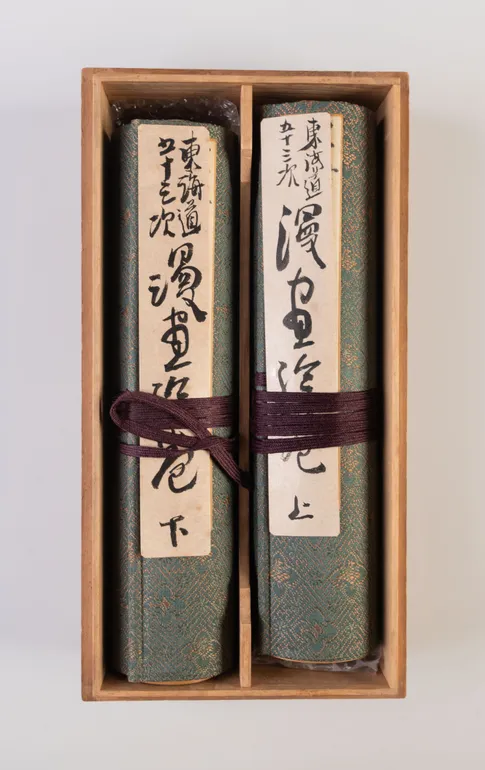 東海道
五十三次
漫画絵巻 上
東海道
五十三次
漫画絵巻 下